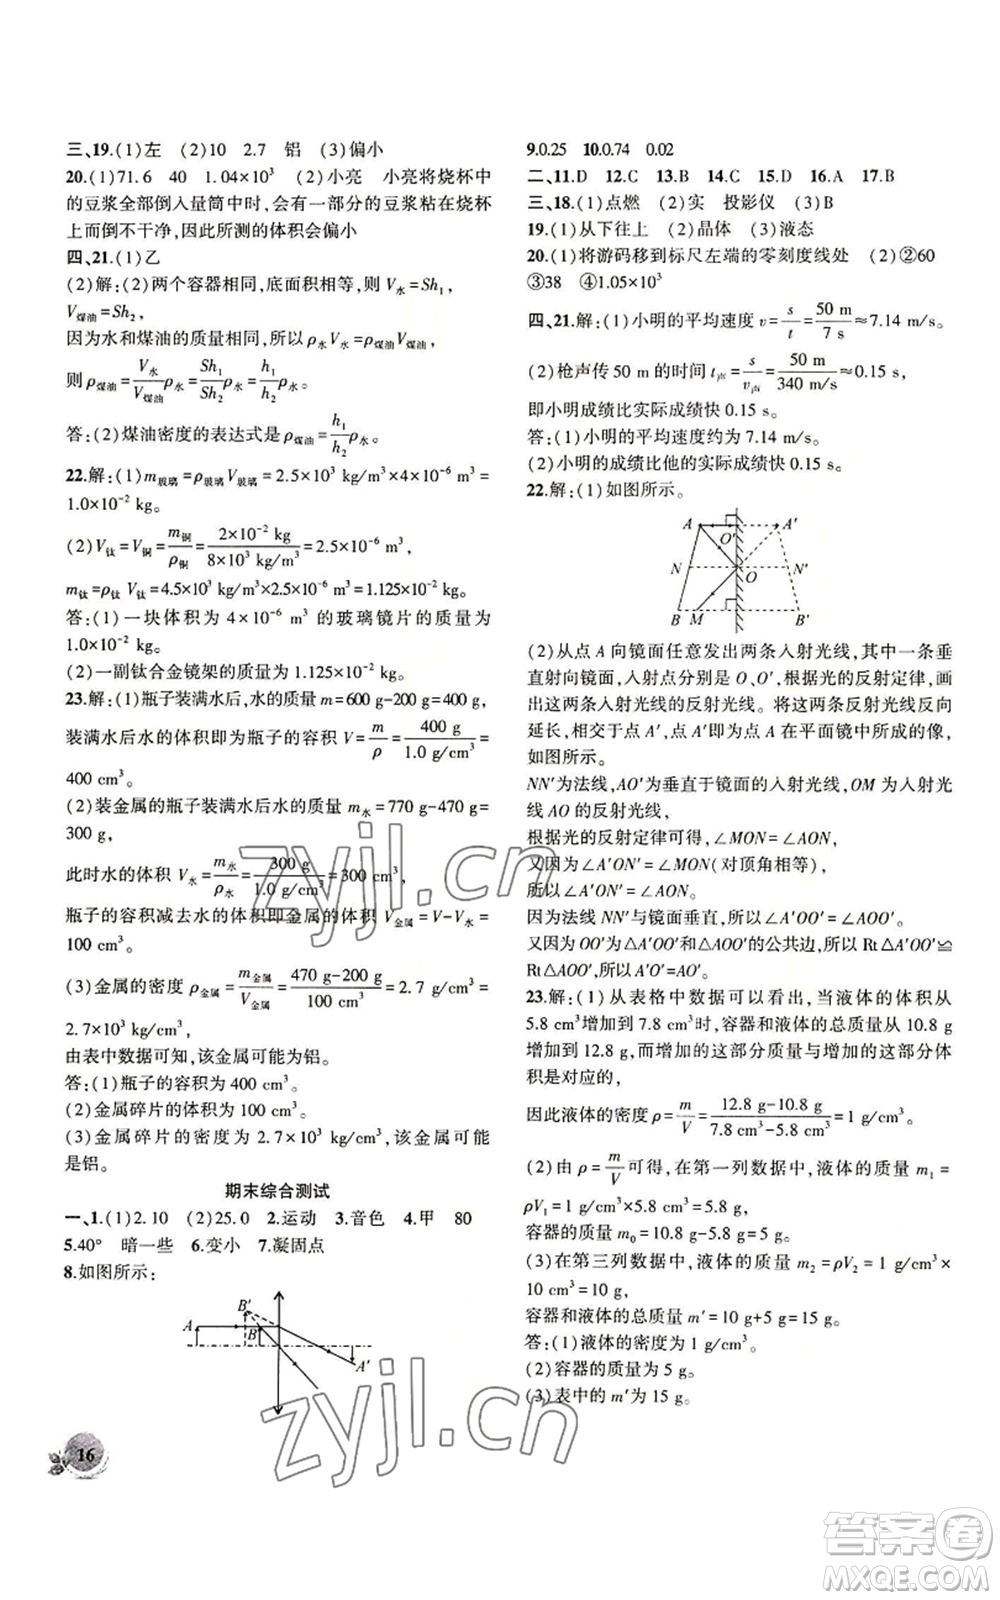 三、19.(1)左 (2)10 2.7 铝 (3)偏小
20.(1)71.6 40 1.04×10³ (2)小亮 小亮将烧杯中
的豆浆全部倒入量筒中时,会有一部分的豆浆粘在烧杯
上而倒不干净,因此所测的体积会偏小
四、21.(1)乙
(2)解:(2)两个容器相同,底面积相等,则V水=Sh₁,
V煤油=Sh₂,
因为水和煤油的质量相同,所以ρ水V水=ρ煤油V煤油,
则ρ煤油=V水/V煤油ρ水=Sh₁/Sh₂ρ水=h₁/h₂ρ水。
答:(2)煤油密度的表达式是ρ煤油=h₁/h₂ρ水。
22.解:(1)m玻璃=ρ玻璃V玻璃=2.5×10³ kg/m³×4×10⁻⁶ m³=
1.0×10⁻² kg。
(2)V钛=V铜=m铜/ρ铜=2×10⁻² kg/8×10³ kg/m³=2.5×10⁻⁶ m³,
m钛=ρ钛V钛=4.5×10³ kg/m³×2.5×10⁻⁶ m³=1.125×10⁻² kg。
答:(1)一块体积为4×10⁻⁶ m³的玻璃镜片的质量为
1.0×10⁻² kg。
(2)一副钛合金镜架的质量为1.125×10⁻² kg。
23.解:(1)瓶子装满水后,水的质量m=600 g-200 g=400 g,
装满水后水的体积即为瓶子的容积V=m/ρ=400 g/1.0 g/cm³=
400 cm³。
(2)装金属的瓶子装满水后水的质量m水=770 g-470 g=
300 g,
此时水的体积V水=m水/ρ水=300 g/1.0 g/cm³=300 cm³,
瓶子的容积减去水的体积即金属的体积V金属=V-V水=
100 cm³。
(3)金属的密度ρ金属=m金属/V金属=470 g-200 g/100 cm³=2.7 g/cm³=
2.7×10³ kg/m³,
由表中数据可知,该金属可能为铝。
答:(1)瓶子的容积为400 cm³。
(2)金属碎片的体积为100 cm³。
(3)金属碎片的密度为2.7×10³ kg/m³,该金属可能
是铝。
期末综合测试
一、1.(1)2.10 (2)25.0 2.运动 3.音色 4.甲 80
5.40° 暗一些 6.变小 7.凝固点
8.如图所示:
B′
A
B
A′
16
9.0.25 10.0.74 0.02
二、11.D 12.C 13.B 14.C 15.D 16.A 17.B
三、18.(1)点燃 (2)实 投影仪 (3)B
19.(1)从下往上 (2)晶体 (3)液态
20.(1)将游码移到标尺左端的零刻度线处 (2)②60
③38 ④1.05×10³
四、21.解:(1)小明的平均速度v=s/t=50 m/7 s≈7.14 m/s。
(2)枪声传50 m的时间t声=s/v声=50 m/340 m/s≈0.15 s,
即小明成绩比实际成绩快0.15 s。
答:(1)小明的平均速度约为7.14 m/s。
(2)小明的成绩比他的实际成绩快0.15 s。
22.解:(1)如图所示。
A
A′
O′
N
N′
O
B
M
B′
(2)从点A向镜面任意发出两条入射光线,其中一条垂
直射向镜面,入射点分别是O、O′,根据光的反射定律,画
出这两条入射光线的反射光线。将这两条反射光线反向
延长,相交于点A′,点A′即为点A在平面镜中所成的像,
如图所示。
NN′为法线,AO′为垂直于镜面的入射光线,OM为入射光
线AO的反射光线,
根据光的反射定律可得,∠MON=∠AON,
又因为∠A′ON′=∠MON(对顶角相等),
所以∠A′ON′=∠AON。
因为法线NN′与镜面垂直,所以∠A′OO′=∠AOO′。
又因为OO′为△A′OO′和△AOO′的公共边,所以Rt△A′OO′≌
Rt△AOO′,所以A′O′=AO′。
23.解:(1)从表格中数据可以看出,当液体的体积从
5.8 cm³增加到7.8 cm³时,容器和液体的总质量从10.8 g
增加到12.8 g,而增加的这部分质量与增加的这部分体
积是对应的,
因此液体的密度ρ=m/V=12.8 g-10.8 g/7.8 cm³-5.8 cm³=1 g/cm³。
(2)由ρ=m/V可得,在第一列数据中,液体的质量m₁=
ρV₁=1 g/cm³×5.8 cm³=5.8 g,
容器的质量m₀=10.8 g-5.8 g=5 g。
(3)在第三列数据中,液体的质量m₂=ρV₂=1 g/cm³×
10 cm³=10 g,
容器和液体的总质量m′=10 g+5 g=15 g。
答:(1)液体的密度为1 g/cm³。
(2)容器的质量为5 g。
(3)表中的m′为15 g。
zyjl.cn
zyjl.cn
答案卷
MXQE.COM